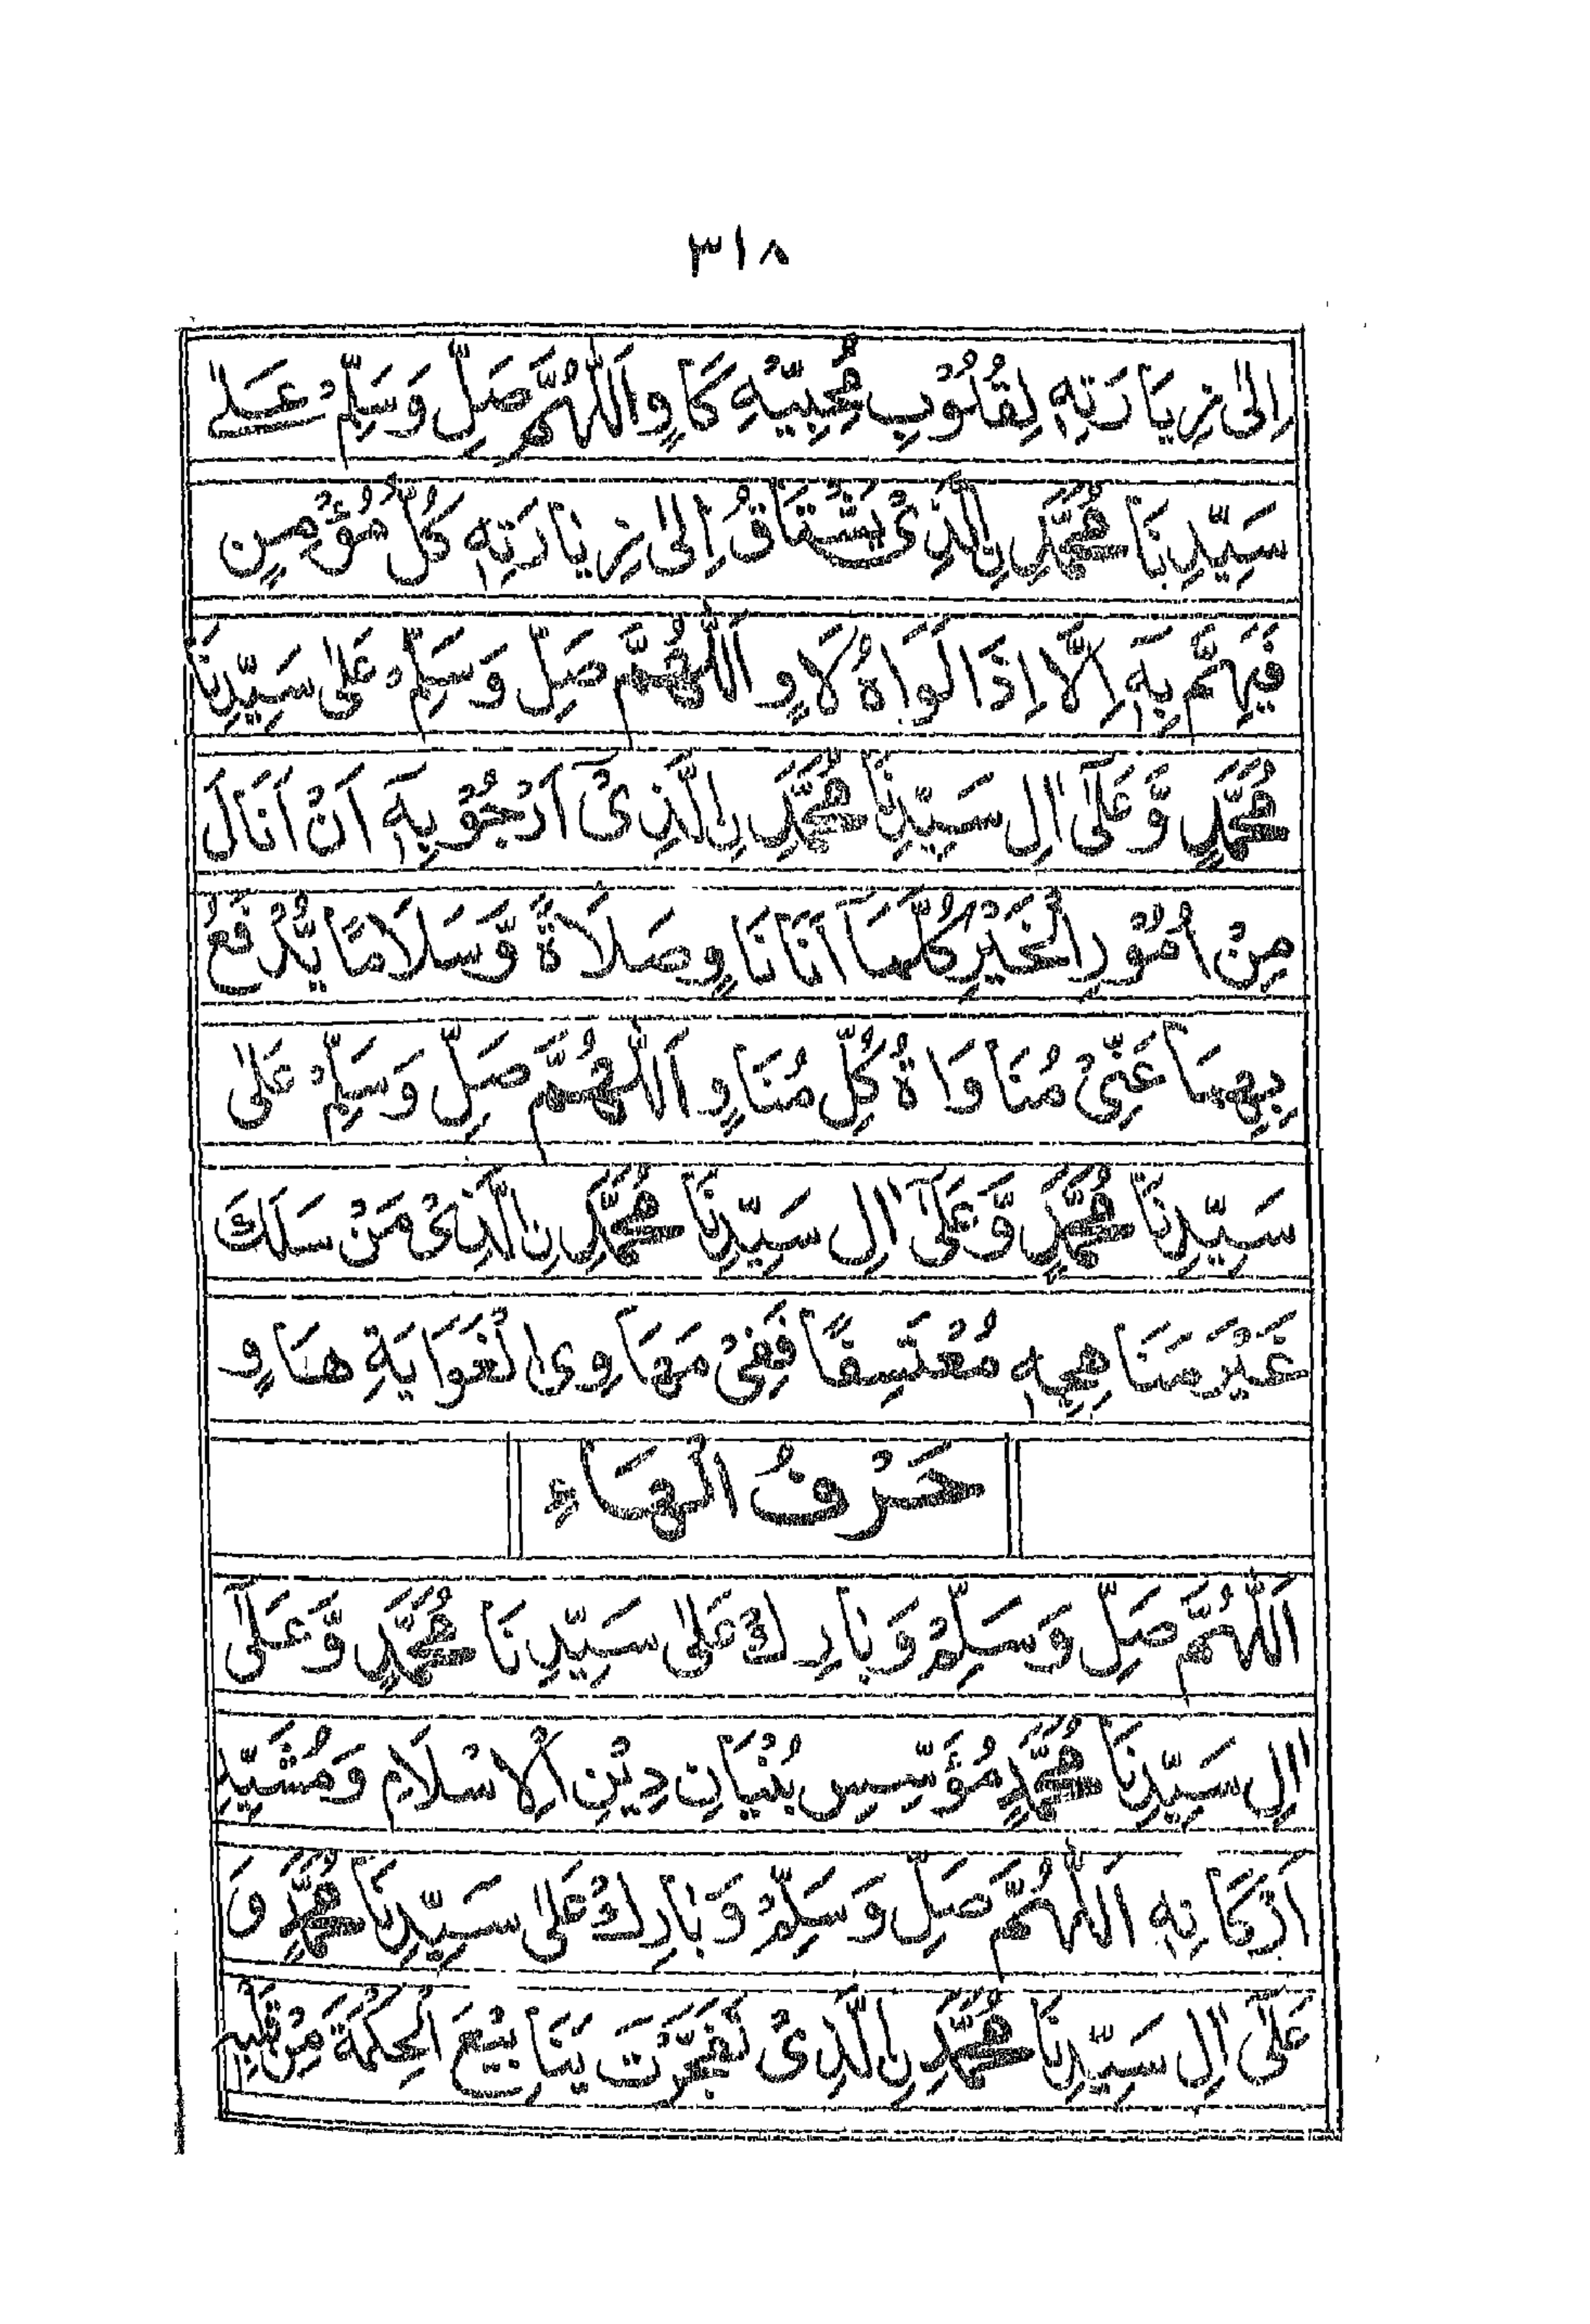 ٣١٨
اِلٰى زِيَارَتِهٖ لِقُلُوْبِ مُحِبِّيْهِ كَاوٍ اَللّٰهُمَّ صَلِّ وَسَلِّمْ عَلٰے
سَيِّدِنَا مُحَمَّدِ نِالَّذِىْ يَشْتَاقُ اِلٰى زِيَارَتِهٖ كُلُّ مُؤْمِنٍ
فَيَهْتَمُّ بِهٖٓ اِلَّا اِذَا لَوَاهُ لَاوٍ اَللّٰهُمَّ صَلِّ وَسَلِّمْ عَلٰى سَيِّدِنَا
مُحَمَّدٍ وَّعَلٰٓى اٰلِ سَيِّدِنَا مُحَمَّدِ نِالَّذِىْٓ اَرْجُوْ بِهٖٓ اَنْ اَنَالَ
مِنْ اُمُوْرِ الْخَيْرِ كُلِّهَآ اَنَا نَاوٍ صَلَاةً وَّسَلَامًا يُّدْفَعُ
بِهِمَا عَنِّىْ مُنَاوَاةُ كُلِّ مُنَاوٍ اَللّٰهُمَّ صَلِّ وَسَلِّمْ عَلٰى
سَيِّدِنَا مُحَمَّدٍ وَّعَلٰٓى اٰلِ سَيِّدِنَا مُحَمَّدِ نِالَّذِىْ مَنْ سَلَكَ
غَيْرَ مَنَاهِجِهٖ مُعْتَسِفًا فَفِىْ مَهَاوِى الْغَوَايَةِ هَاوٍ
حَرْفُ الْهَاءِ
اَللّٰهُمَّ صَلِّ وَسَلِّمْ وَبَارِكْ عَلٰى سَيِّدِنَا مُحَمَّدٍ وَّعَلٰٓى
اٰلِ سَيِّدِنَا مُحَمَّدٍ مُؤَسِّسِ بُنْيَانِ دِيْنِ الْاِسْلَامِ وَمُشَيِّدِ
اَرْكَانِهٖ اَللّٰهُمَّ صَلِّ وَسَلِّمْ وَبَارِكْ عَلٰى سَيِّدِنَا مُحَمَّدٍ وَّ
عَلٰٓى اٰلِ سَيِّدِنَا مُحَمَّدِ نِالَّذِىْ تَفَجَّرَتْ يَنَابِيْعُ الْحِكْمَةِ مِنْ قَلْبِهٖ